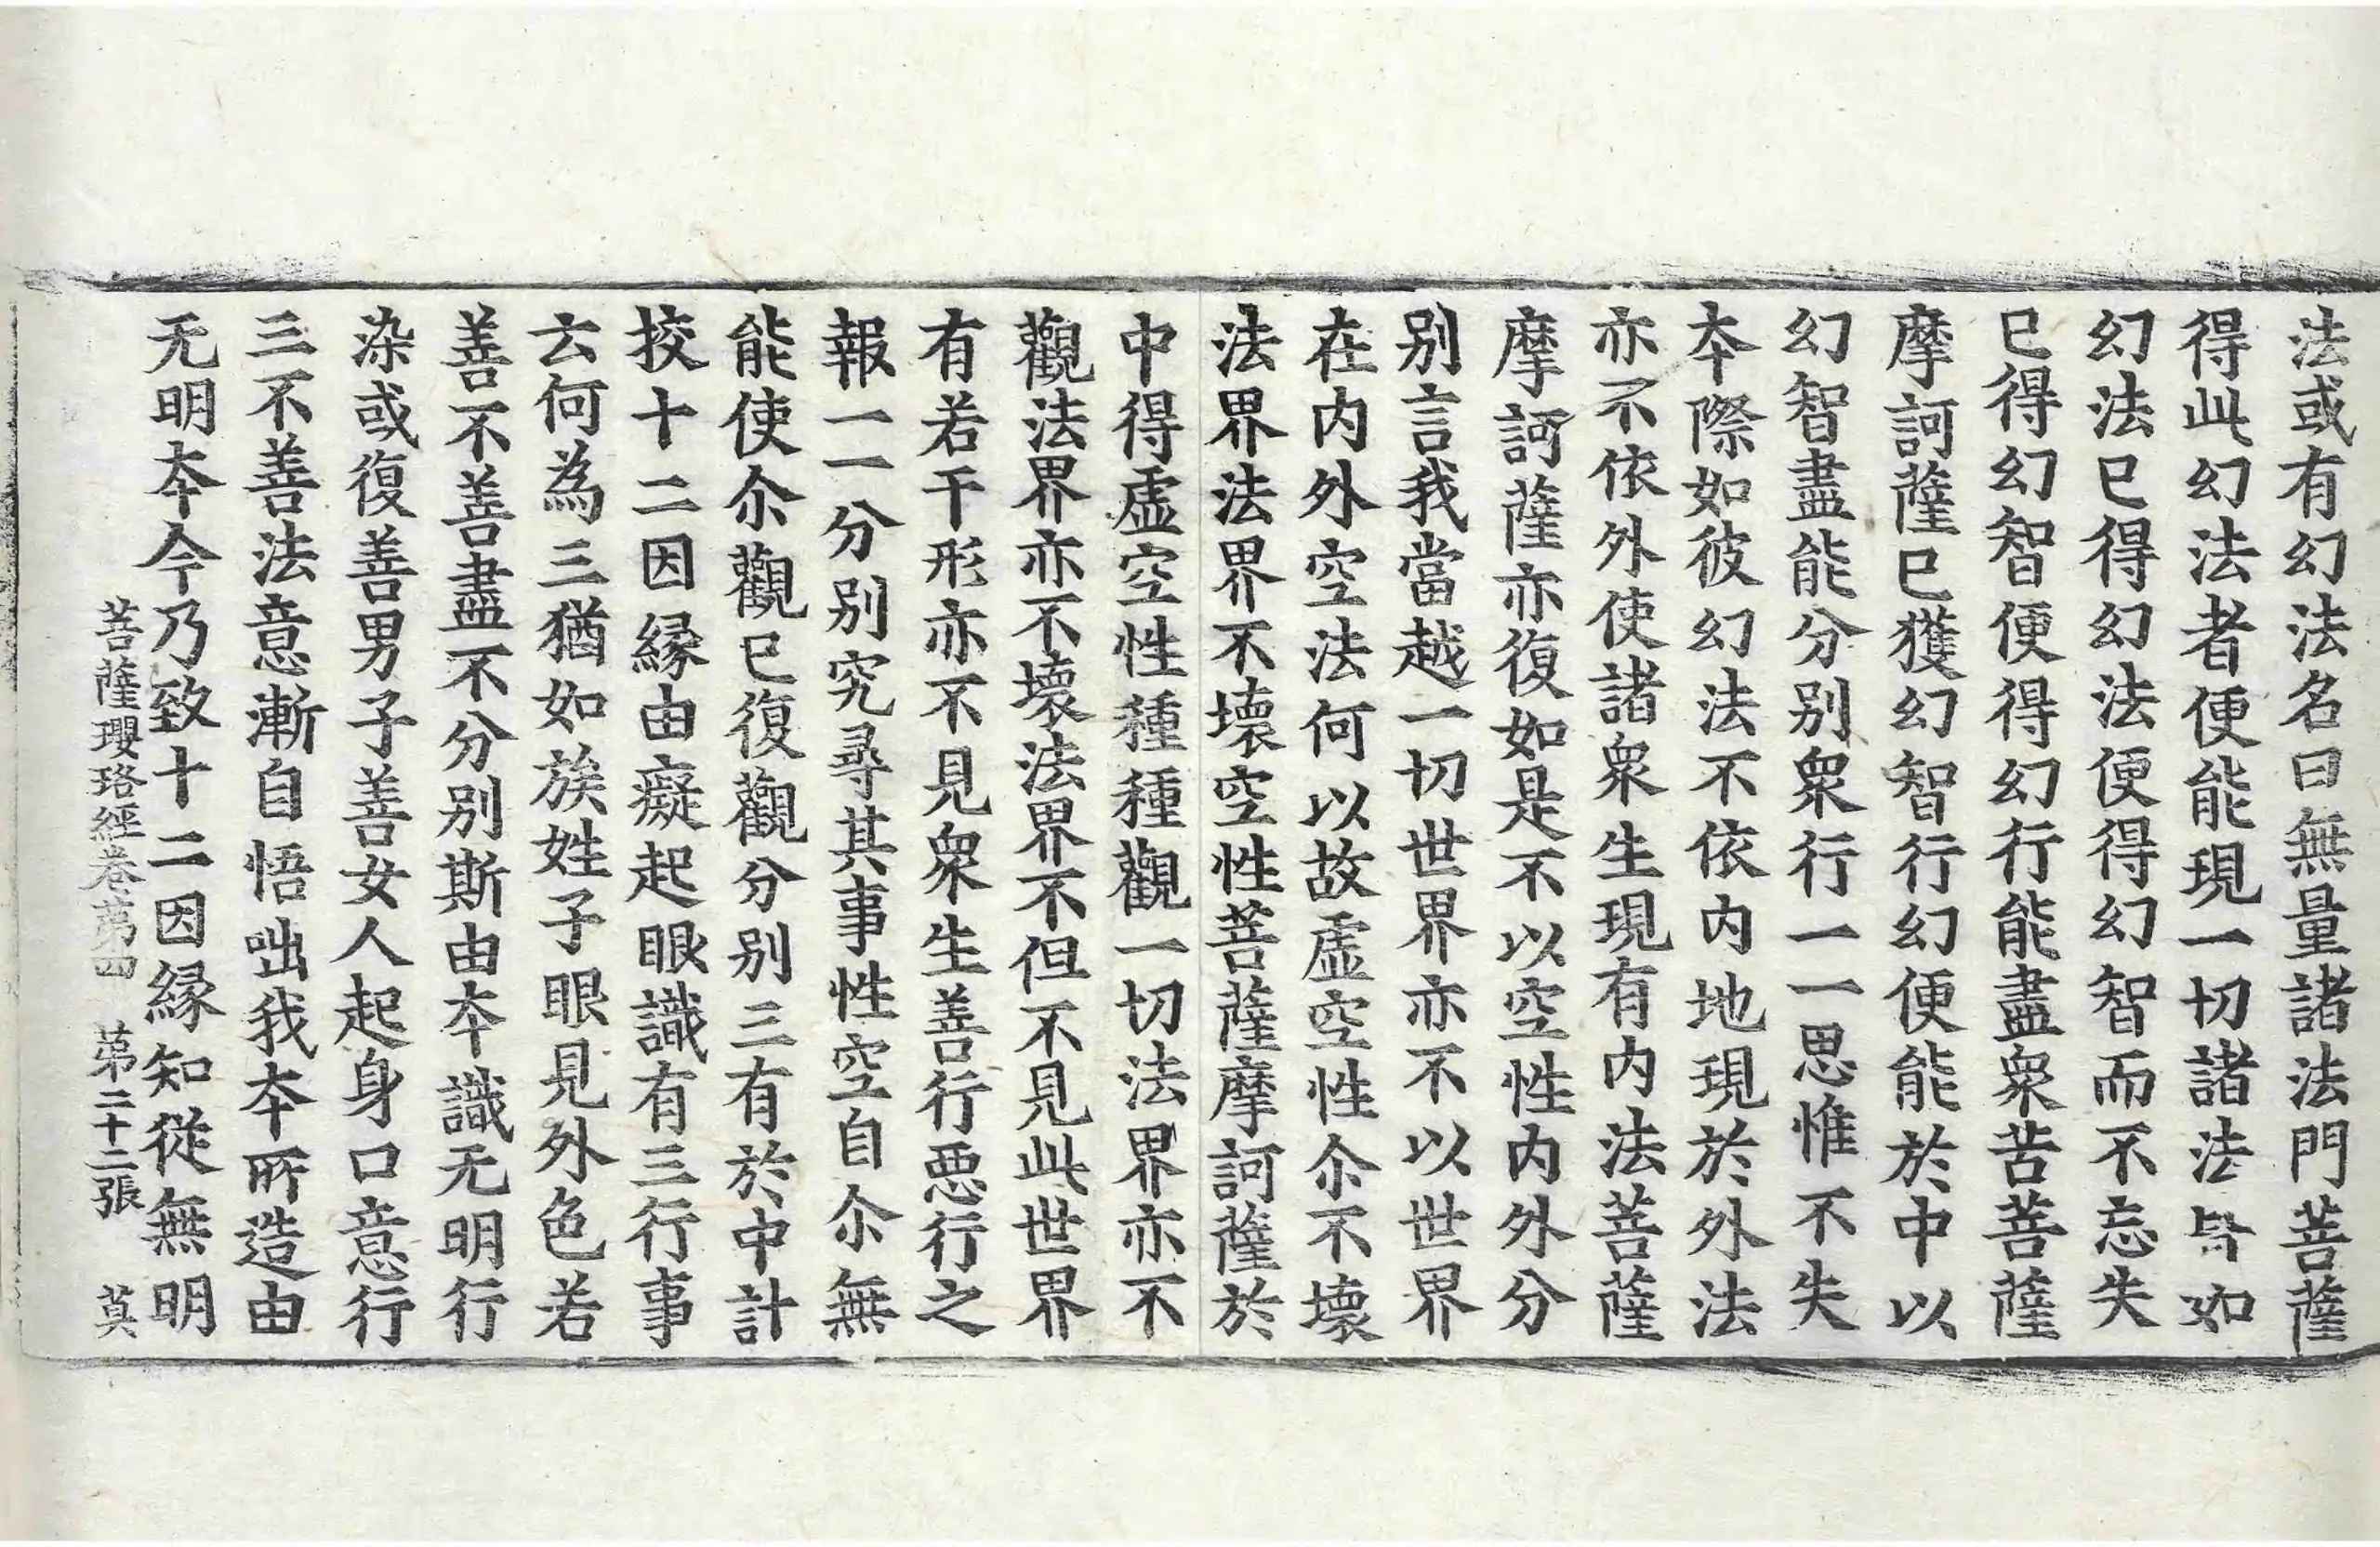 法或有幻法名曰無量諸法門菩薩
得此幻法者便能現一切諸法皆如
幻法已得幻法便得幻智而不忘失
已得幻智便得幻行能盡衆苦菩薩
摩訶薩已獲幻智行幻便能於中以
幻智盡能分別衆行一一思惟不失
本際如彼幻法不依內地現於外法
亦不依外使諸衆生現有內法菩薩
摩訶薩亦復如是不以空性內外分
別言我當越一切世界亦不以世界
在內外空法何以故虛空性尒不壞
法界法界不壞空性菩薩摩訶薩於
中得虛空性種種觀一切法界亦不
觀法界亦不壞法界不但不見此世界
有若干形亦不見衆生善行惡行之
報一一分別究尋其事性空自尒無
能使尒觀已復觀分別三有於中計
挍十二因緣由癡起眼識有三行事
云何為三猶如族姓子眼見外色若
善不善盡不分別斯由本識无明行
染或復善男子善女人起身口意行
三不善法意漸自悟咄我本所造由
无明本今乃致十二因緣知從無明
菩薩瓔珞經卷第四　第二十二張　莫